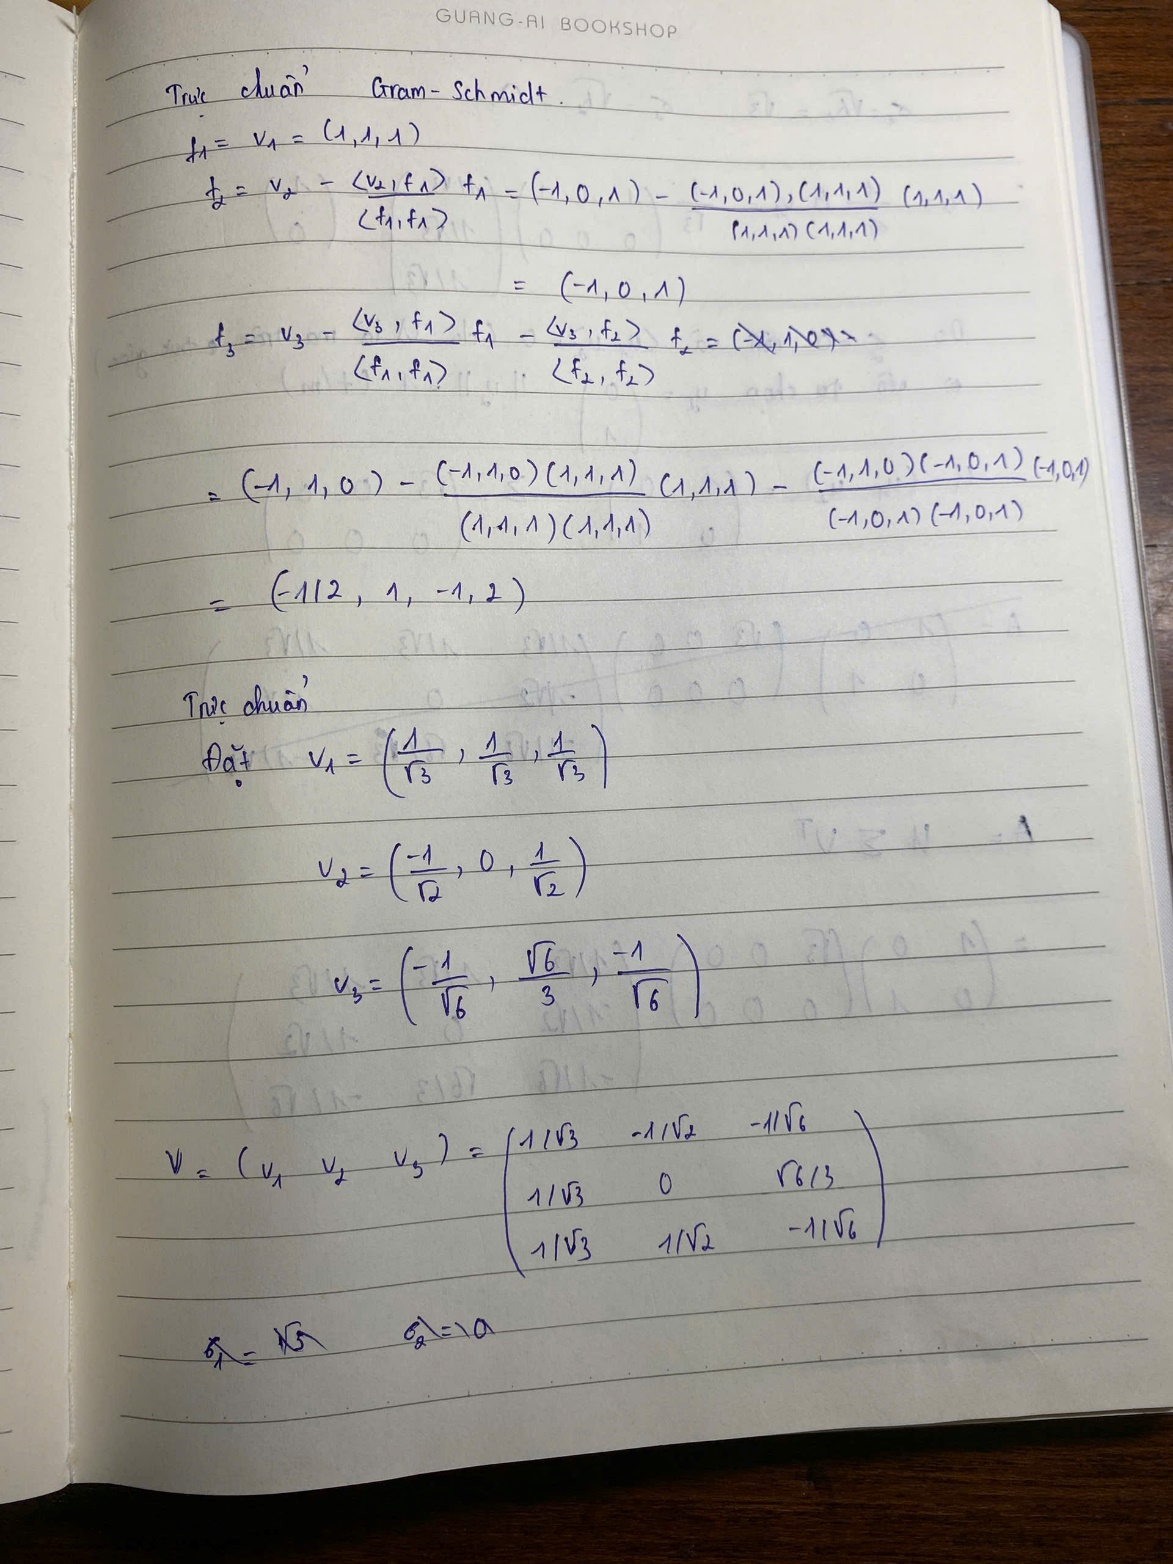 GUANG-AI BOOKSHOP
Trực chuẩn Gram-Schmidt.
f₁ = v₁ = (1,1,1)
f₂ = v₂ - <v₂, f₁> / <f₁, f₁> f₁ = (-1,0,1) - (-1,0,1), (1,1,1) / (1,1,1)(1,1,1) (1,1,1)
= (-1,0,1)
f₃ = v₃ - <v₃, f₁> / <f₁, f₁> f₁ - <v₃, f₂> / <f₂, f₂> f₂ =
= (-1, 1, 0) - (-1,1,0)(1,1,1) / (1,1,1)(1,1,1) (1,1,1) - (-1,1,0)(-1,0,1) / (-1,0,1)(-1,0,1) (-1,0,1)
= (-1/2, 1, -1, 2)
Trực chuẩn
Đặt v₁ = (1/√3, 1/√3, 1/√3)
v₂ = (-1/√2, 0, 1/√2)
v₃ = (-1/√6, √6/3, -1/√6)
V = (v₁ v₂ v₃) = (1/√3 -1/√2 -1/√6
1/√3 0 √6/3
1/√3 1/√2 -1/√6)